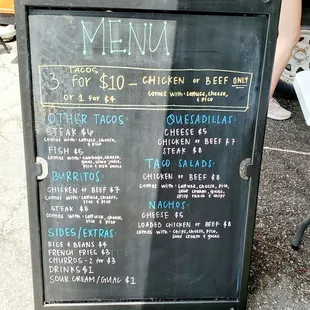 MENU
3 TACOS for $10 - CHICKEN or BEEF ONLY
or 1 for $4
comes with: lettuce, cheese, & pico
OTHER TACOS:
STEAK $6
comes with: lettuce, cheese, & pico
FISH $5
comes with: cabbage, cheese,
pico & fish sauce
BURRITOS
CHICKEN or BEEF $7
comes with: lettuce, cheese,
rice & pico
STEAK $8
comes with: lettuce, cheese,
rice & pico
SIDES/EXTRAS:
RICE & BEANS $4
FRENCH FRIES $3
CHURROS - 2 for $3
DRINKS $1
SOUR CREAM/GUAC $1
QUESADILLAS:
CHEESE $5
CHICKEN or BEEF $7
STEAK $8
TACO SALADS:
CHICKEN or BEEF $8
comes with: lettuce, cheese, pico,
sour cream, guac,
NACHOS:
CHEESE $5
LOADED CHICKEN or BEEF $8
comes with: chips, cheese, pico,
sour cream & guac